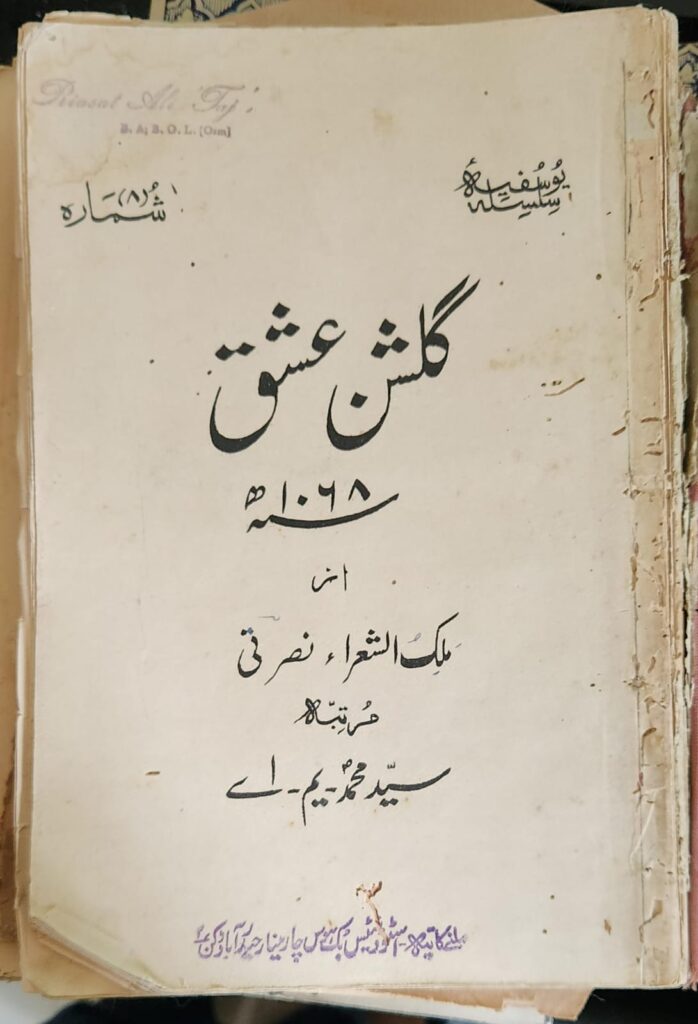 Riasat Ali 'Taj'
B. A; B. O. L. [Osm]
سِلسِلۂ یُوسُفیہ
شُمارہ (۸)
گلشن عشق
سنہ ۱۰۶۸ھ
از
ملِکُ الشعراء نصرتی
مُرتبّہ
سیّد محمدؐ - یم - اے
ملنے کا پتہ - اسٹوڈنٹس بک ہوس چار مینار حیدرآباد دکن